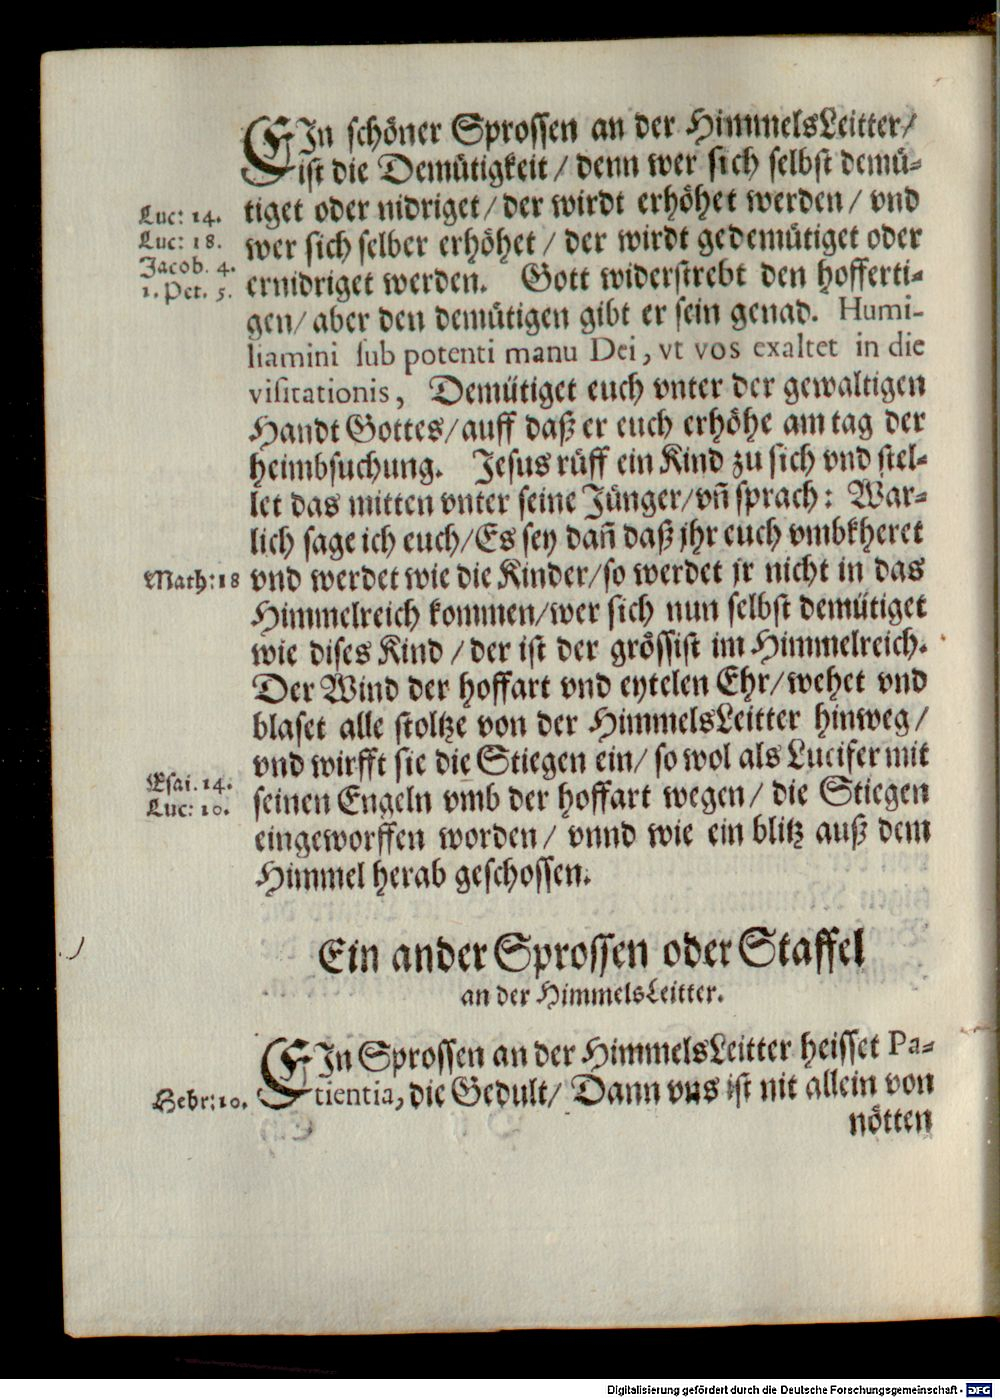 EJn schöner Sprossen an der HimmelsLeitter/
ist die Demütigkeit / denn wer sich selbst demü-
Luc: 14. tiget oder nidriget / der wirdt erhöhet werden / vnd
Luc: 18. wer sich selber erhöhet / der wirdt gedemütiget oder
Jacob. 4.
1. Pet. 5. ernidriget werden. Gott widerstrebt den hofferti-
gen / aber den demütigen gibt er sein genad. Humi-
liamini sub potenti manu Dei, vt vos exaltet in die
visitationis, Demütiget euch vnter der gewaltigen
Handt Gottes / auff daß er euch erhöhe am tag der
heimbsuchung. Jesus rüff ein Kind zu sich vnd stel-
let das mitten vnter seine Jünger / vñ sprach: War-
lich sage ich euch / Es sey dañ daß jhr euch vmbkheret
Math: 18 vnd werdet wie die Kinder / so werdet jr nicht in das
Himmelreich kommen / wer sich nun selbst demütiget
wie dises Kind / der ist der grössist im Himmelreich.
Der Wind der hoffart vnd eytelen Ehr / wehet vnd
blaset alle stoltze von der HimmelsLeitter hinweg /
vnd wirfft sie die Stiegen ein / so wol als Lucifer mit
Esai. 14.
Luc: 10. seinen Engeln vmb der hoffart wegen / die Stiegen
eingeworffen worden / vnnd wie ein blitz auß dem
Himmel herab geschossen.
Ein ander Sprossen oder Staffel
an der HimmelsLeitter.
EJn Sprossen an der HimmelsLeitter heisset Pa-
Hebr: 10. tientia, die Gedult / Dann vns ist nit allein von
nötten
Digitalisierung gefördert durch die Deutsche Forschungsgemeinschaft - DFG